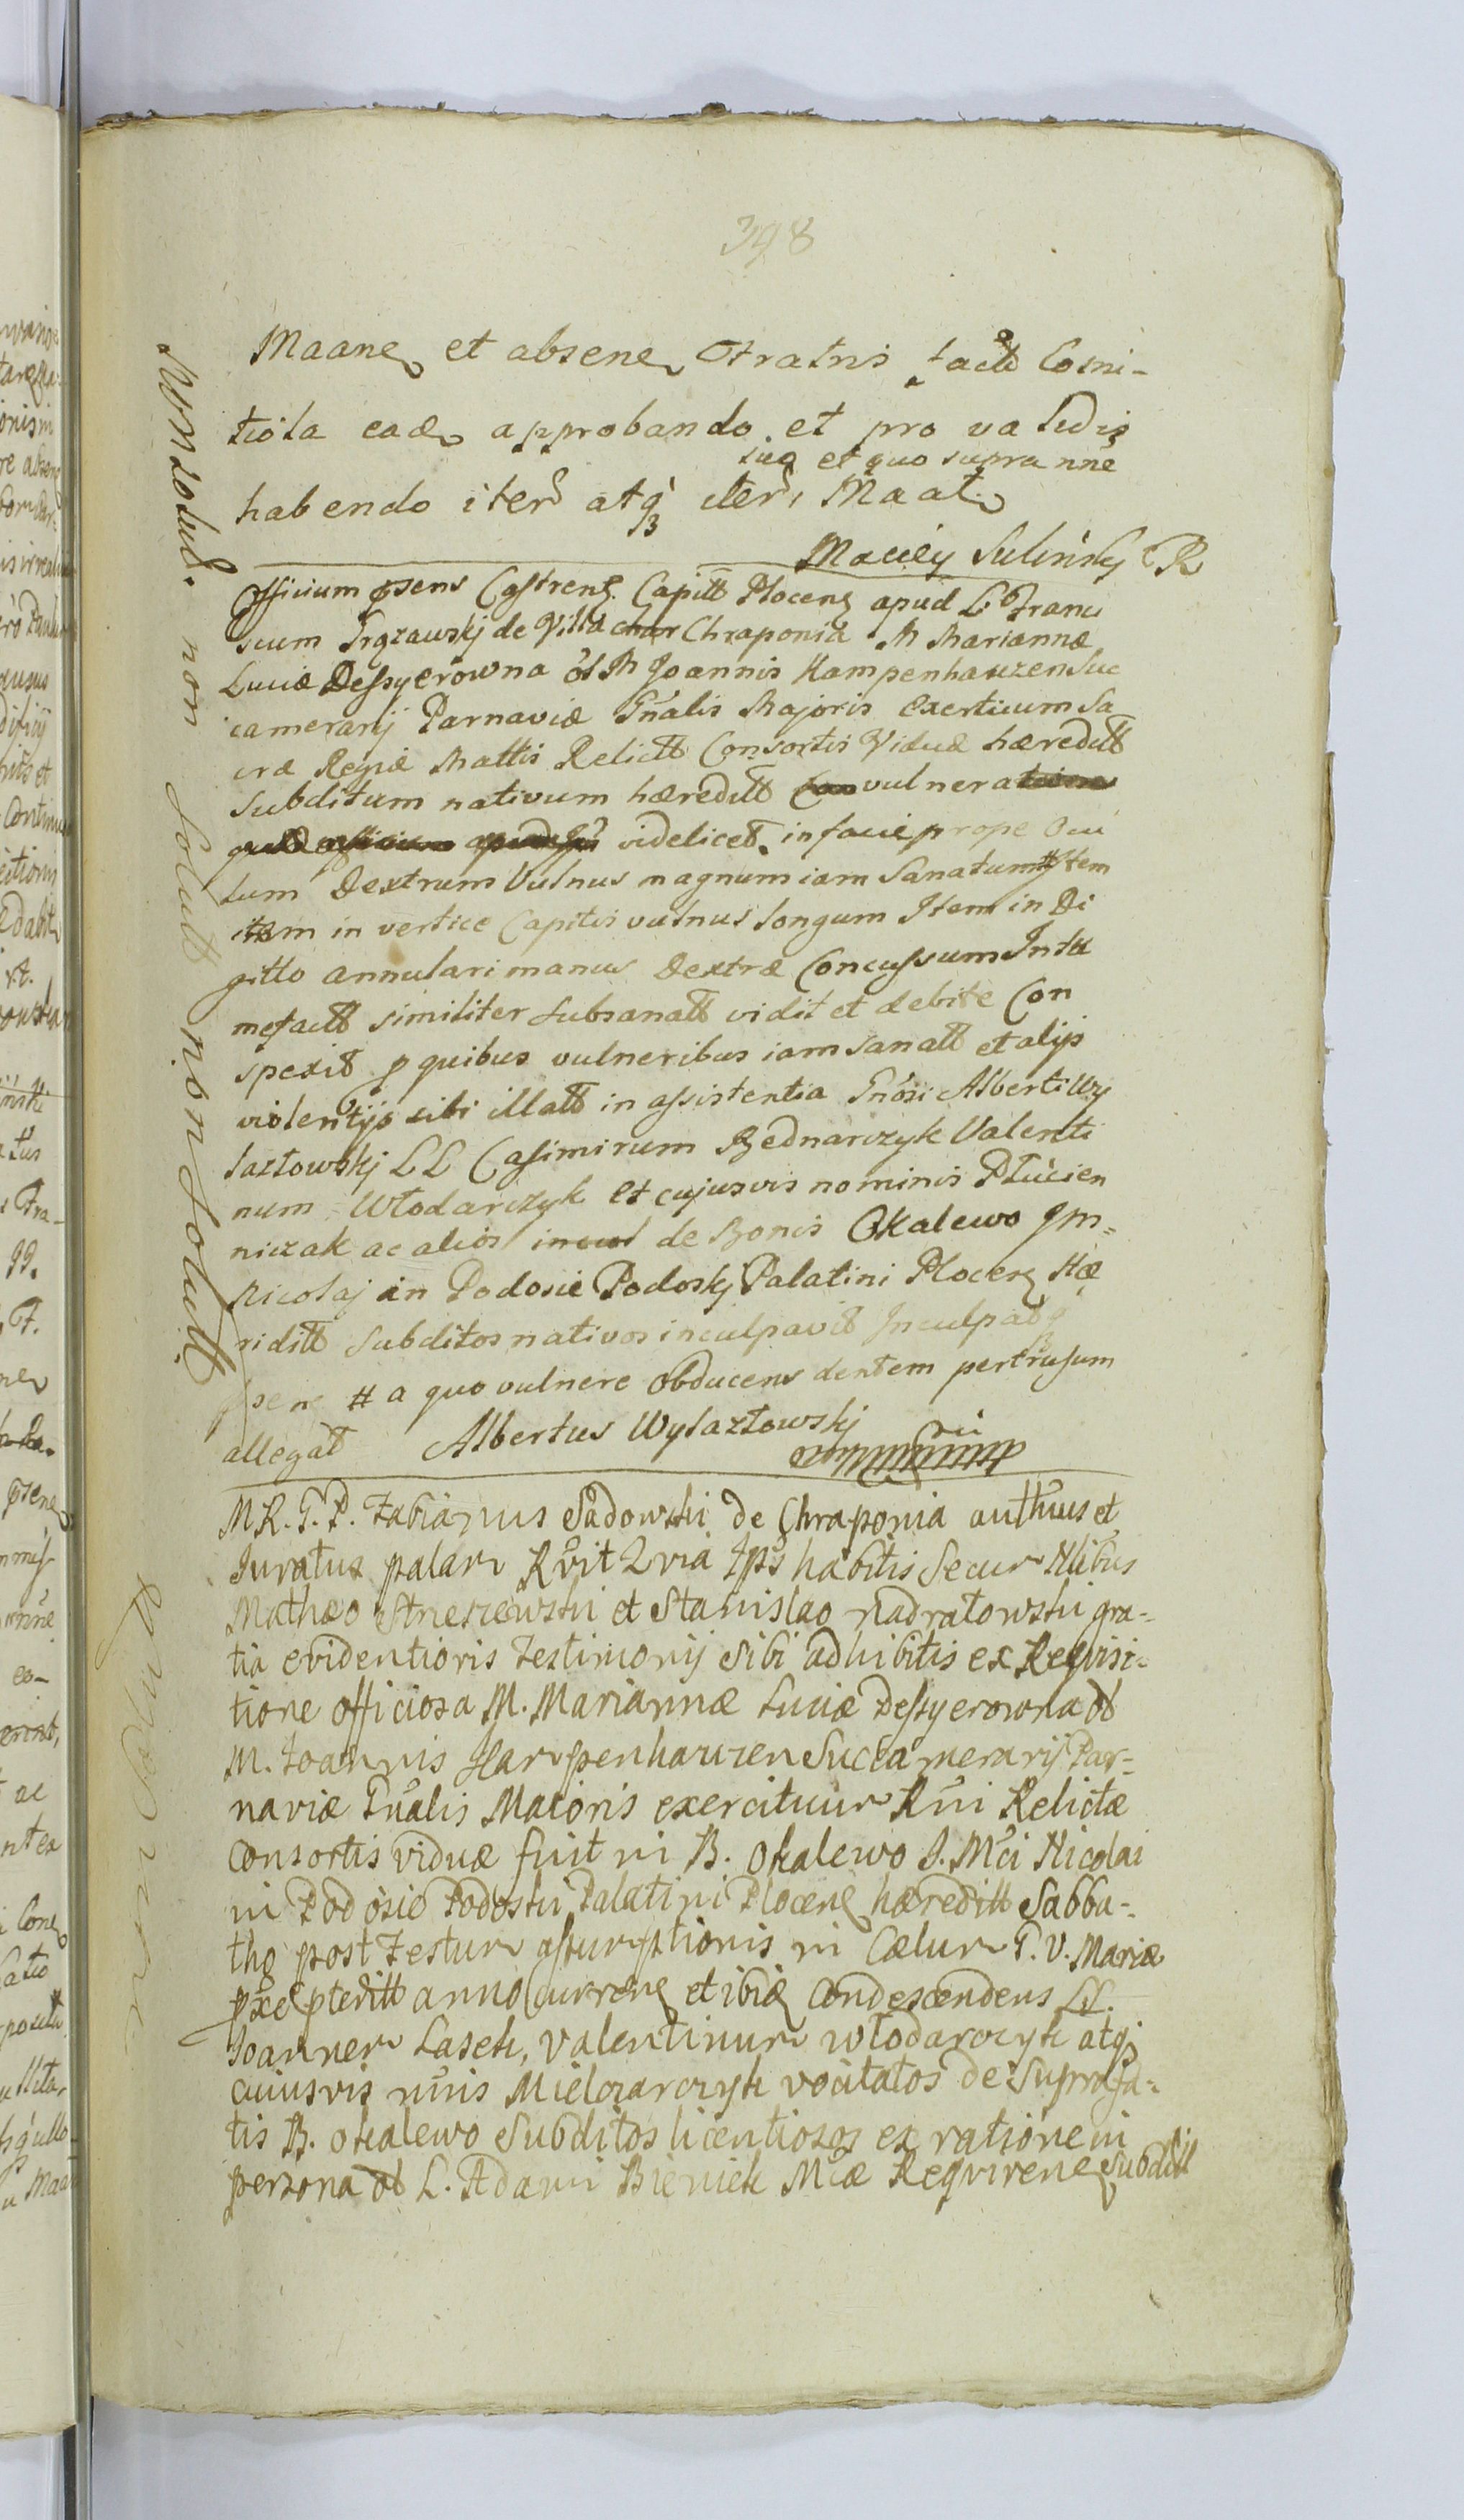 398
Maane et absene Fratris facto Comi-
tiola eade approbando et pro validis
suo et quo supra nne
habendo iter atq iter, Maat
Maciey Suliński R
Officium psens Castrens. Capitt Plocens apud L. Franci
scum Trzawskj de Villa char Chraponia M Mariannæ
Luciæ Dessyerowna ol M Joannis Hampenhauzen Suc
camerarij Parnaviæ Gnalis Majoris Exerticum Sa
cræ Regiæ Mattis Relictt Consortis Viduæ hæreditt
Subditum nativum hæreditt Con vulneratum
videlicet. in facie prope Ocu
lum Dextrum Vulnus magnum iam Sanatum # Item
item in vertice Capitis vulnus longum Item in Di
gitto annulari manus Dextræ Concussum Intu
mefactt similiter subsanatt vidit et debite Con
spexit p quibus vulneribus iam sanatt et alijs
violentijs sibi illatt in assistentia Gnosi Alberti Wy
lazłowskj LL Casimirum Bednarczyk Valenti
num Włodarczyk Et cujusvis nominis Płúcien
niczak ac alios incul de Bonis Okalewo Jm=
Nicolaj in Podosie Podoskj Palatini Plocens Hæ
riditt Subditos nativos inculpavit Inculpatq
psene # a quo vulnere obducens dentem pertrusum
allegat Albertus Wylazłowskj
M R. G. P. Fabianus Sadowski de Chraponia authus et
Juratus palam Rvit Qvia Ips habitis Secum Nlibus
Mathæo Strzeszewski et Stanislao Nadratowski gra-
tia evidentioris Testimonij Sibi adhibitis ex Reqvisi-
tione officiosa M. Mariannæ Luciæ Dessyerowna ol
M. Joannis Hampenhauzen Succamerarij Par-
naviæ Gnalis Maioris exercituum Rni Relictæ
Consortis viduæ fuit in B. Okalewo J. Mci Nicolai
in Podosie Podoski Palatini Plocens hæreditt Sabba-
tho post Festum assumptionis in Cælum B. V. Mariæ
anno currens et ibid Condescendens LL.
Joannem Lasek, Valentinum Włodarczyk atq
cuiusvis nnis Mielczarczyk vocitatos de Suprafa-
tis B. Okalewo Subditos licentiosos ex ratione in
persona ol L. Adami Bieniek Mcæ Reqvirens Subditt
Non solut. non Solutt non Solutt.